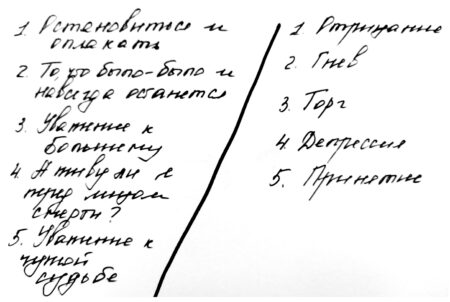 1. Остановиться и
оплакать
2. То, что было-было и
навсегда останется
3. Уважение к
большему
4. А живу ли я
перед лицом
смерти?
5. Уважение к
чужой
судьбе
1. Отрицание
2. Гнев
3. Торг
4. Депрессия
5. Принятие